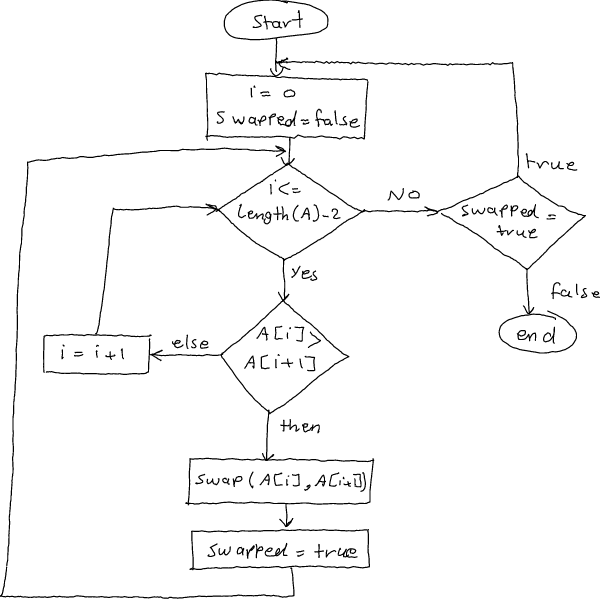 Start
i = 0
Swapped=false
true
i<=
length(A)-2
NO
swapped =
true
yes
false
end
A[i]>
A[i+1]
else
i = i+1
then
swap(A[i],A[i+1])
swapped = true